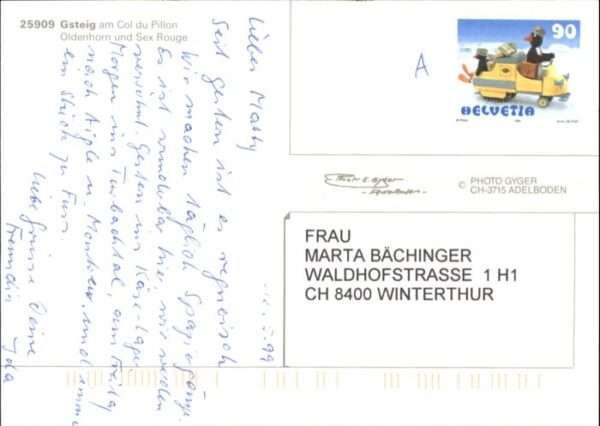 25909 Gsteig am Col du Pillon
Oldenhorn und Sex Rouge
Liebe Matty
Seit gestern ist es regnerisch
Wir machen täglich Spaziergänge.
Es ist wunderbar hier, wir werden
verwöhnt. Gestern im Käse-Lager
Morgen ins Turbachtal, am Freitag
nach Aigle u. Montreux und immer
ein Stück zu Fuss.
Liebe Grüsse Deine
Freundin Ida
99
A
90
HELVETIA
© PHOTO GYGER
CH-3715 ADELBODEN
FRAU
MARTA BÄCHINGER
WALDHOFSTRASSE 1 H1
CH 8400 WINTERTHUR